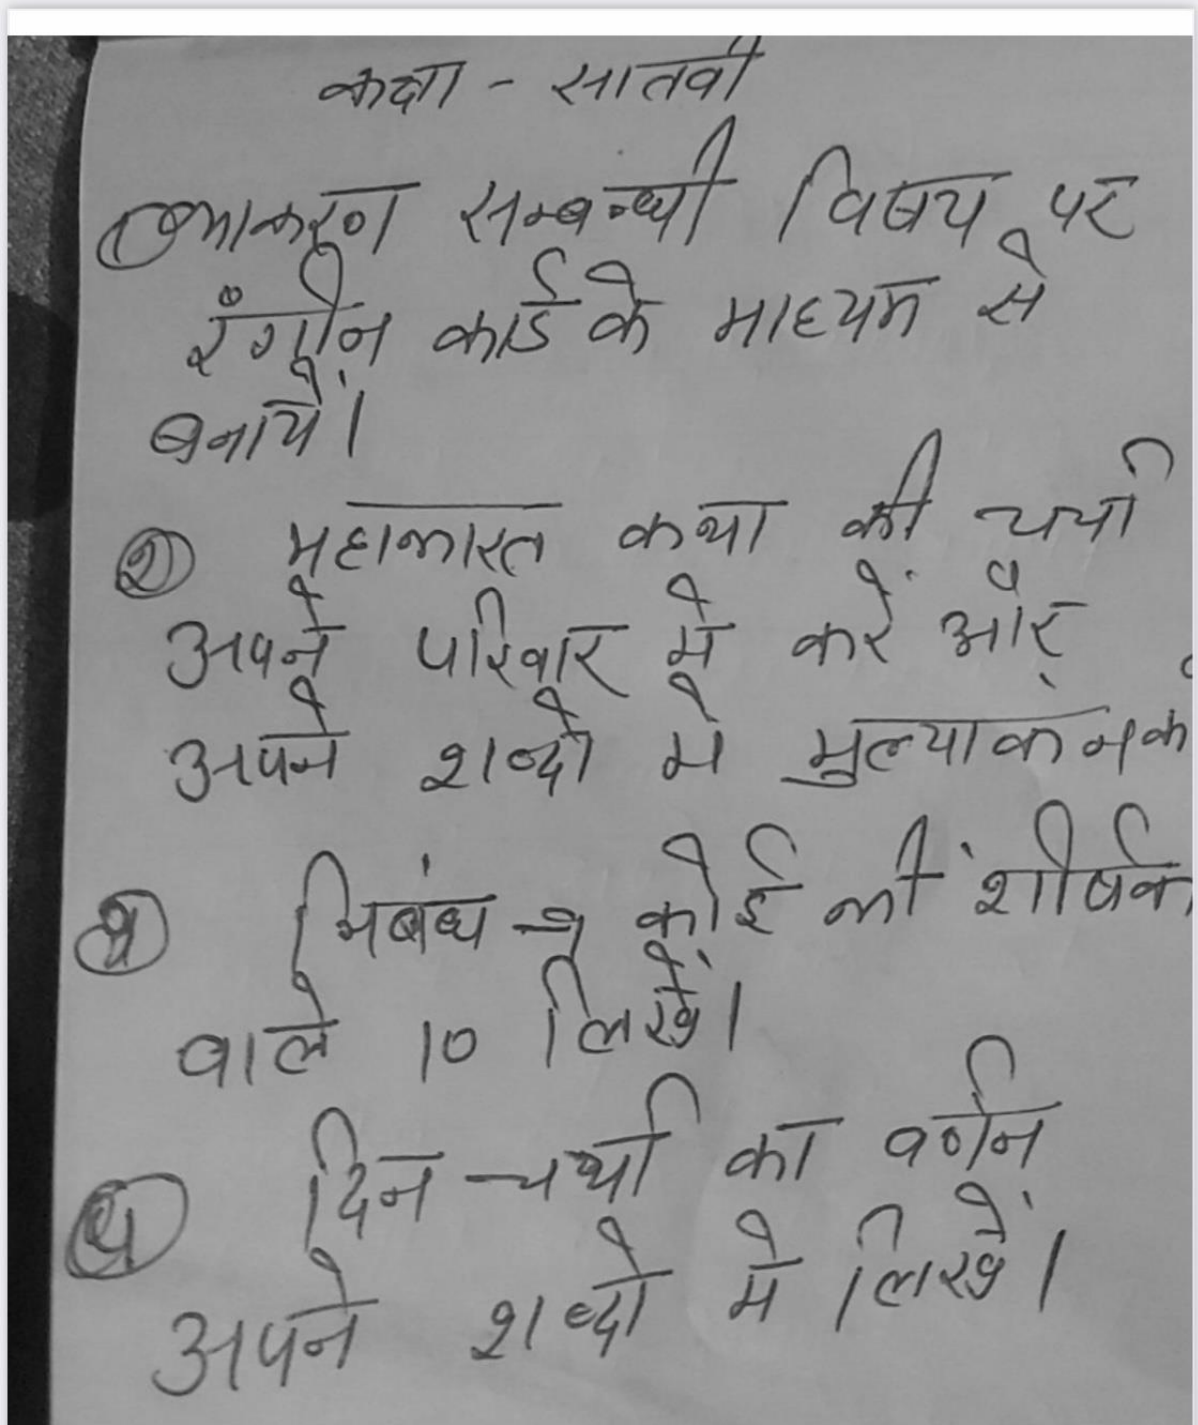 कक्षा - सातवी
① व्याकरण सम्बन्धी विषय पर
रंगीन कार्ड के माध्यम से
बनायें।
② महाभारत कथा की चर्चा
अपने परिवार में करें और
अपने शब्दो में मुल्याकन क
निबंध → कोई भी शीर्षक
वाले 10 लिखें।
दिन-चर्या का वर्णन
अपने शब्दो में लिखें।